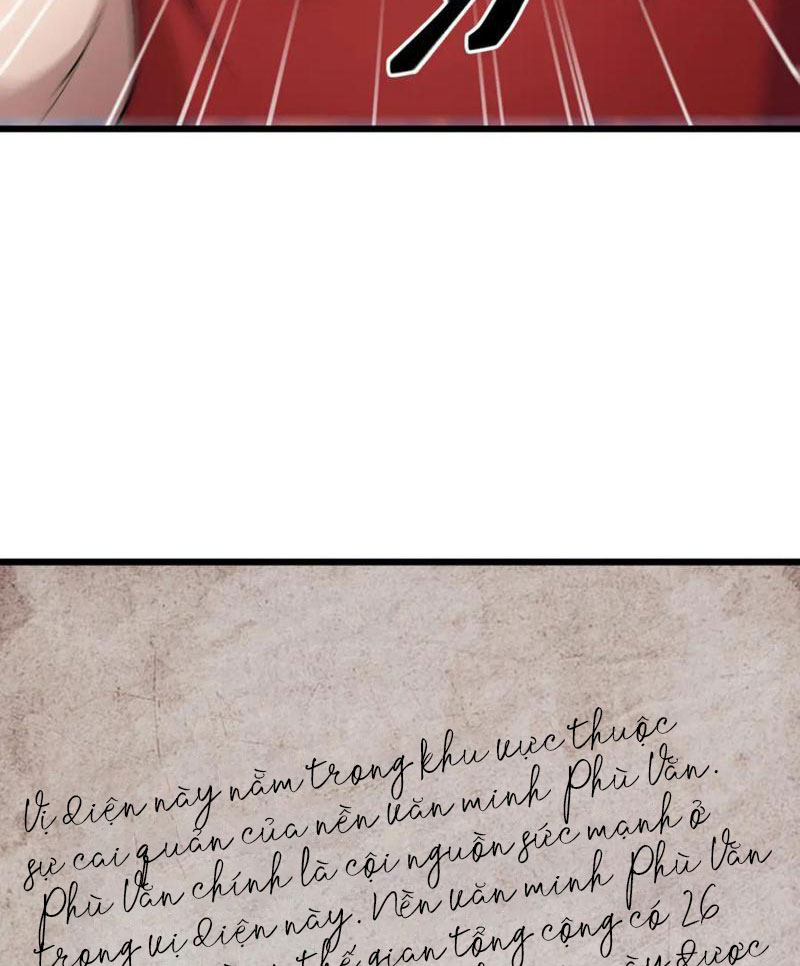 Vị diện này nằm trong khu vực thuộc
sự cai quản của nền văn minh Phù Văn.
Phù Văn chính là cội nguồn sức mạnh ở
trong vị diện này. Nền văn minh Phù Văn
thế gian tổng cộng có 26
này được